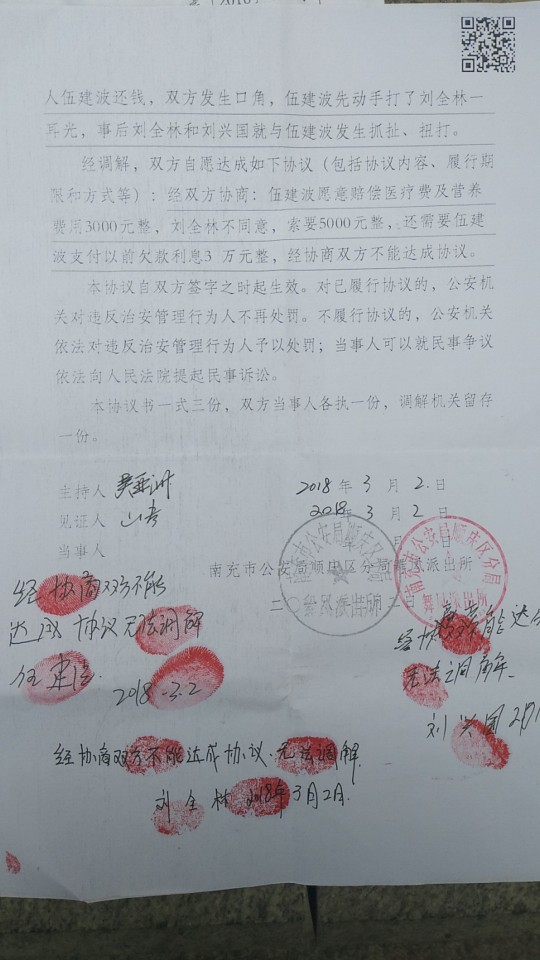 人伍建波还钱，双方发生口角，伍建波先动手打了刘全林一
耳光，事后刘全林和刘兴国就与伍建波发生抓扯、扭打。
经调解，双方自愿达成如下协议（包括协议内容、履行期
限和方式等）：经双方协商：伍建波愿意赔偿医疗费及营养
费用3000元整，刘全林不同意，索要5000元整，还需要伍建
波支付以前欠款利息3 万元整，经协商双方不能达成协议。
本协议自双方签字之时起生效。对已履行协议的，公安机
关对违反治安管理行为人不再处罚。不履行协议的，公安机关
依法对违反治安管理行为人予以处罚；当事人可以就民事争议
依法向人民法院提起民事诉讼。
本协议书一式三份，双方当事人各执一份，调解机关留存
一份。
主持人 2018 年 3 月 2 日
见证人 2018 年 3 月 2 日
当事人 月 日
南充市公安局顺庆区分局舞凤派出所
二〇
经协商双方不能
达成协议无法调解
伍建波
2018-3-2
无法调解
刘兴国
经协商双方不能达成协议.无法调解
刘全林 2018年3月2日